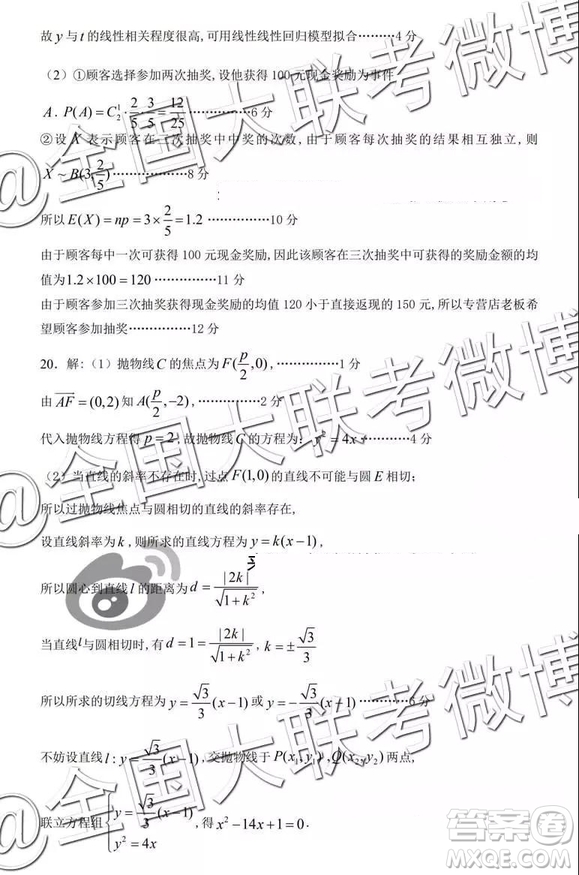 故 y 与 t 的线性相关程度很高,可用线性线性回归模型拟合………4 分
(2)①顾客选择参加两次抽奖,设他获得 100 元现金奖励为事件
A. P(A)=C₂¹·2/5·3/5=12/25……………6 分
②设 X 表示顾客在三次抽奖中中奖的次数,由于顾客每次抽奖的结果相互独立,则
X~B(3,2/5)………………8 分
所以 E(X)=np=3×2/5=1.2……………10 分
由于顾客每中一次可获得 100 元现金奖励,因此该顾客在三次抽奖中可获得的奖励金额的均
值为1.2×100=120……………11 分
由于顾客参加三次抽奖获得现金奖励的均值 120 小于直接返现的 150 元,所以专营店老板希
望顾客参加抽奖……………12 分
20. 解:(1)抛物线 C 的焦点为 F(p/2,0),……………1 分
由 AF=(0,2)知 A(p/2,-2),……………2 分
代入抛物线方程得 p=2,故抛物线 C 的方程为:y²=4x…………4 分
(2)当直线的斜率不存在时,过点 F(1,0)的直线不可能与圆 E 相切;
所以过抛物线焦点与圆相切的直线的斜率存在,
设直线斜率为 k,则所求的直线方程为 y=k(x-1),
所以圆心到直线 l 的距离为 d=|2k|/√(1+k²),
当直线 l 与圆相切时,有 d=1=|2k|/√(1+k²),k=±√3/3
所以所求的切线方程为 y=√3/3(x-1)或 y=-√3/3(x+1)…………6 分
不妨设直线 l:y=√3/3(x-1),交抛物线于 P(x₁,y₁),Q(x₂,y₂)两点,
联立方程组{y=√3/3(x-1)
y²=4x
,得 x²-14x+1=0.
@全国大联考微博
@全国大联考微博
@全国大联考微博
答案圈
MXQE.COM